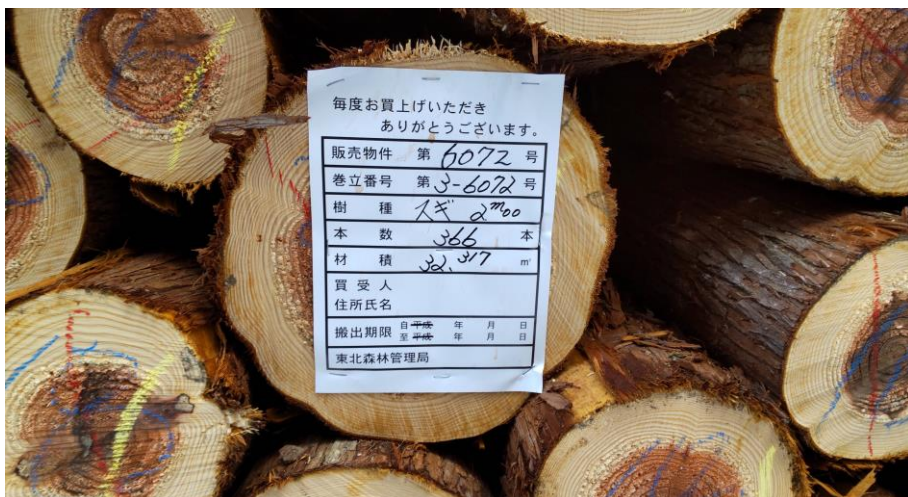 毎度お買上げいただき
ありがとうございます。
販売物件 第 6072 号
巻立番号 第 3-6072 号
樹種 スギ 2m00
本数 366 本
材積 32.317 m³
買受人
住所氏名
搬出期限 自 平成 年 月 日
至 平成 年 月 日
東北森林管理局